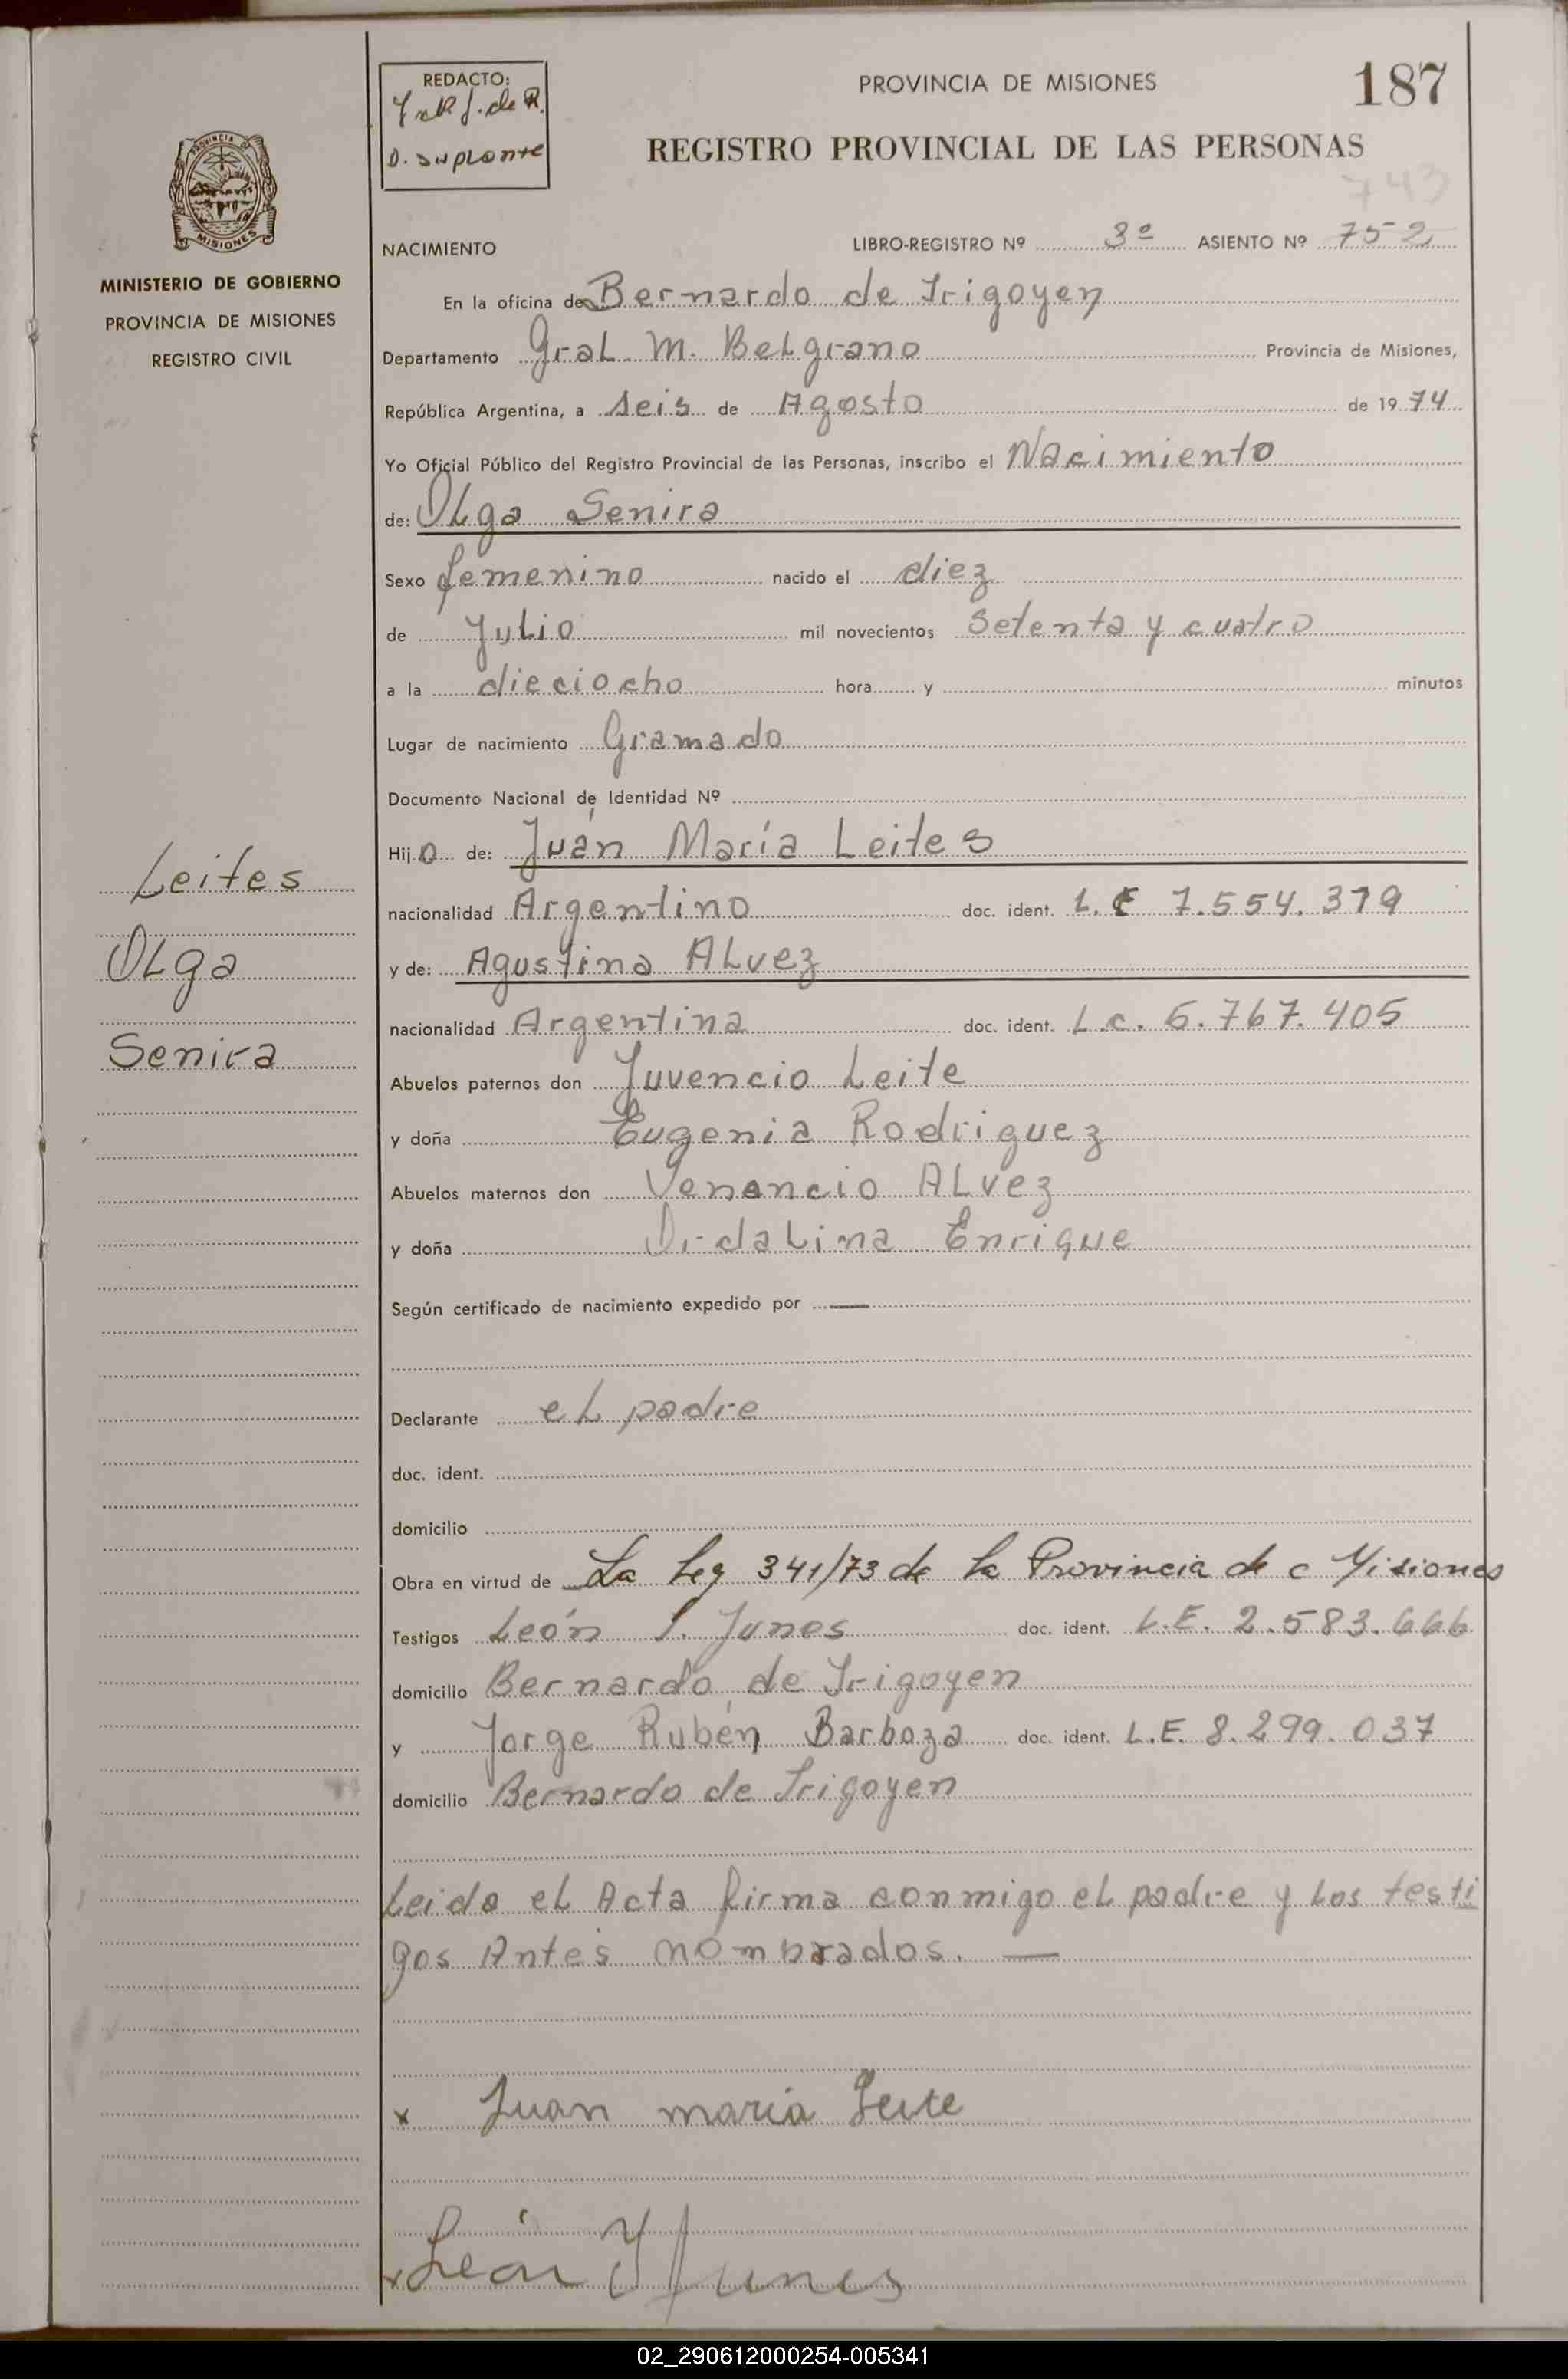 REDACTO:
D. suplente
PROVINCIA DE MISIONES
187
REGISTRO PROVINCIAL DE LAS PERSONAS
743
NACIMIENTO
LIBRO-REGISTRO Nº 3º ASIENTO Nº 752
PROVINCIA DE
MISIONES
MINISTERIO DE GOBIERNO
PROVINCIA DE MISIONES
REGISTRO CIVIL
En la oficina de Bernardo de Irigoyen
Departamento Gral. M. Belgrano Provincia de Misiones,
República Argentina, a seis de Agosto de 1974
Yo Oficial Público del Registro Provincial de las Personas, inscribo el Nacimiento
de: Olga Senira
Sexo femenino nacido el diez
de Julio mil novecientos setenta y cuatro
a la dieciocho hora y minutos
Lugar de nacimiento Gramado
Documento Nacional de Identidad Nº
Hijo de: Juán María Leites
nacionalidad Argentino doc. ident. L.E 7.554.379
y de: Agustina Alvez
nacionalidad Argentina doc. ident. L.c. 6.767.405
Abuelos paternos don Juvencio Leite
y doña Eugenia Rodriguez
Abuelos maternos don Venancio Alvez
y doña Ordalina Enrique
Según certificado de nacimiento expedido por —
Declarante el padre
doc. ident.
domicilio
Obra en virtud de La Ley 341/73 de la Provincia de Misiones
Testigos León I. Junes doc. ident. L.E. 2.583.666
domicilio Bernardo de Irigoyen
y Jorge Rubén Barboza doc. ident. L.E. 8.299.037
domicilio Bernardo de Irigoyen
Leida el Acta firma conmigo el padre y los testi
gos Antes nombrados. —
Leites
Olga
Senira
x Juan maria Leite
x León
02_290612000254-005341